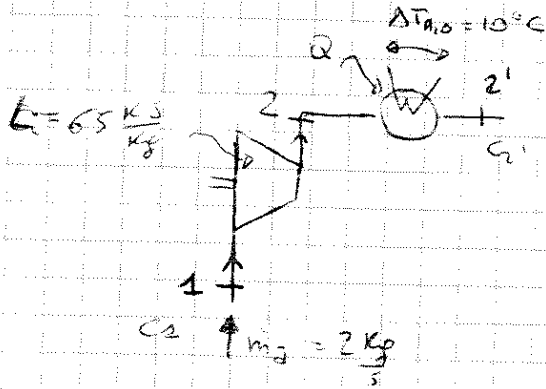 ΔT_H₂O = 10°C
Q
2
2'
L = 65 KJ/Kg
C2'
1
C1
ṁg = 2 Kg/s